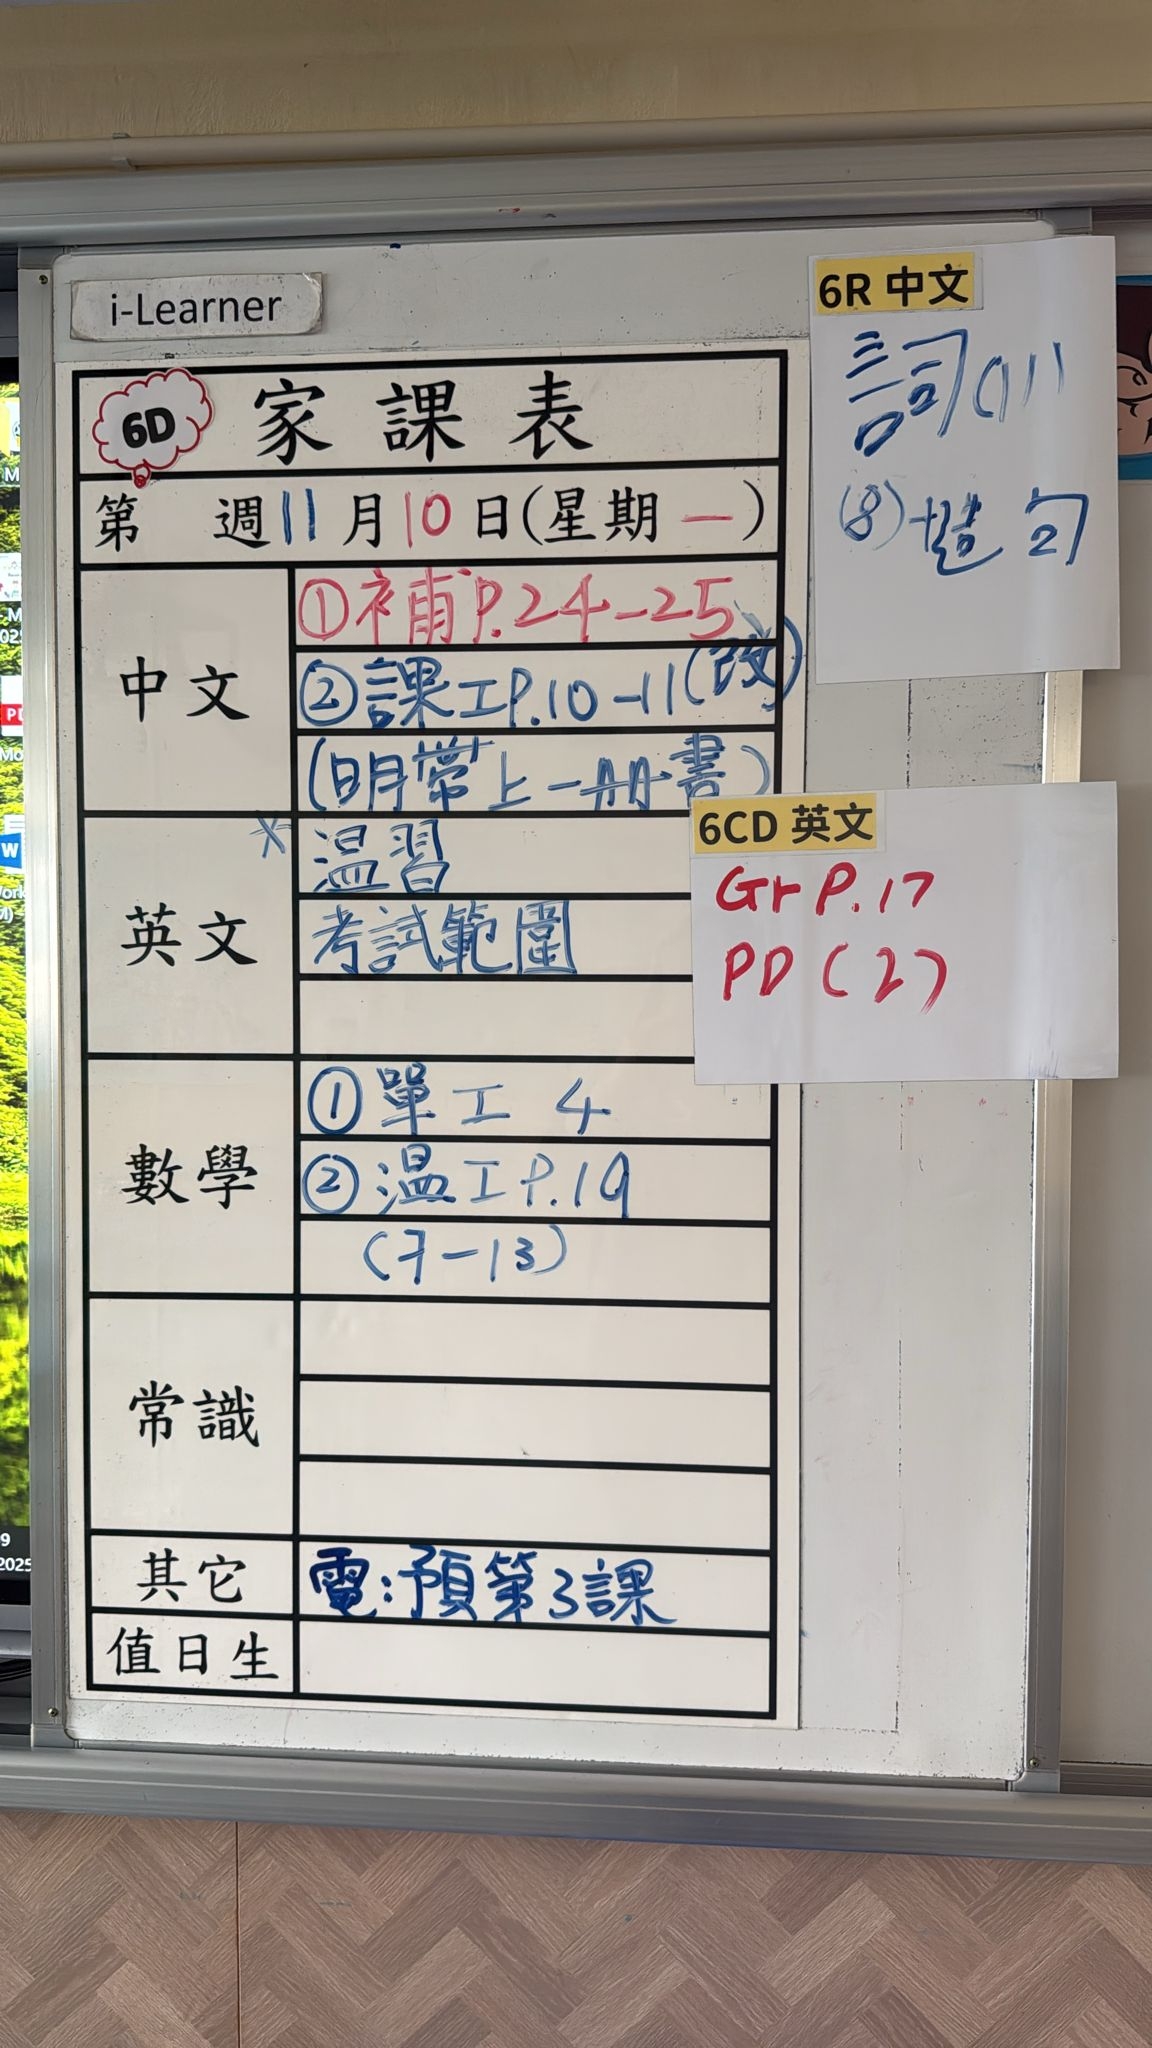 i-Learner
6D 家課表
第 週 11月10日(星期一)
中文
①補P.24-25
②課工P.10-11(改)
(明帶上一冊書)
英文
*溫習
考試範圍
數學
①單工 4
②溫工P.19
(7-13)
常識
其它
電:預第3課
值日生
6R 中文
詞(11)
(8)+造句
6CD 英文
Gr P.17
PD (2)